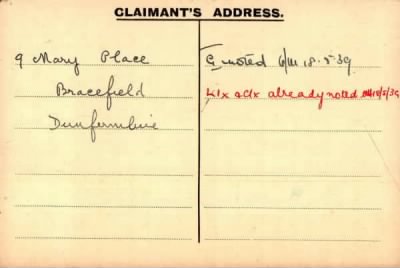 CLAIMANT'S ADDRESS.
9 Mary Place
Bracefield
Dunfermline
G noted 6/M 18.5.39
L1x & C1x already noted 18/5/39